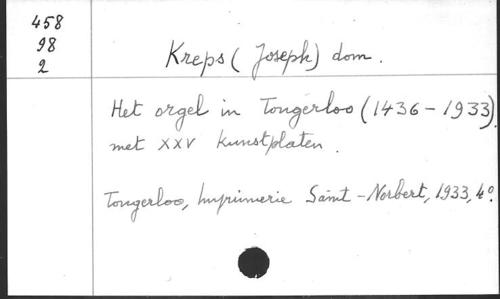 458
98
2
Kreps (Joseph) dom.
Het orgel in Tongerloo (1436-1933).
met XXV kunstplaten.
Tongerloo, Imprimerie Saint-Norbert, 1933, 4º.